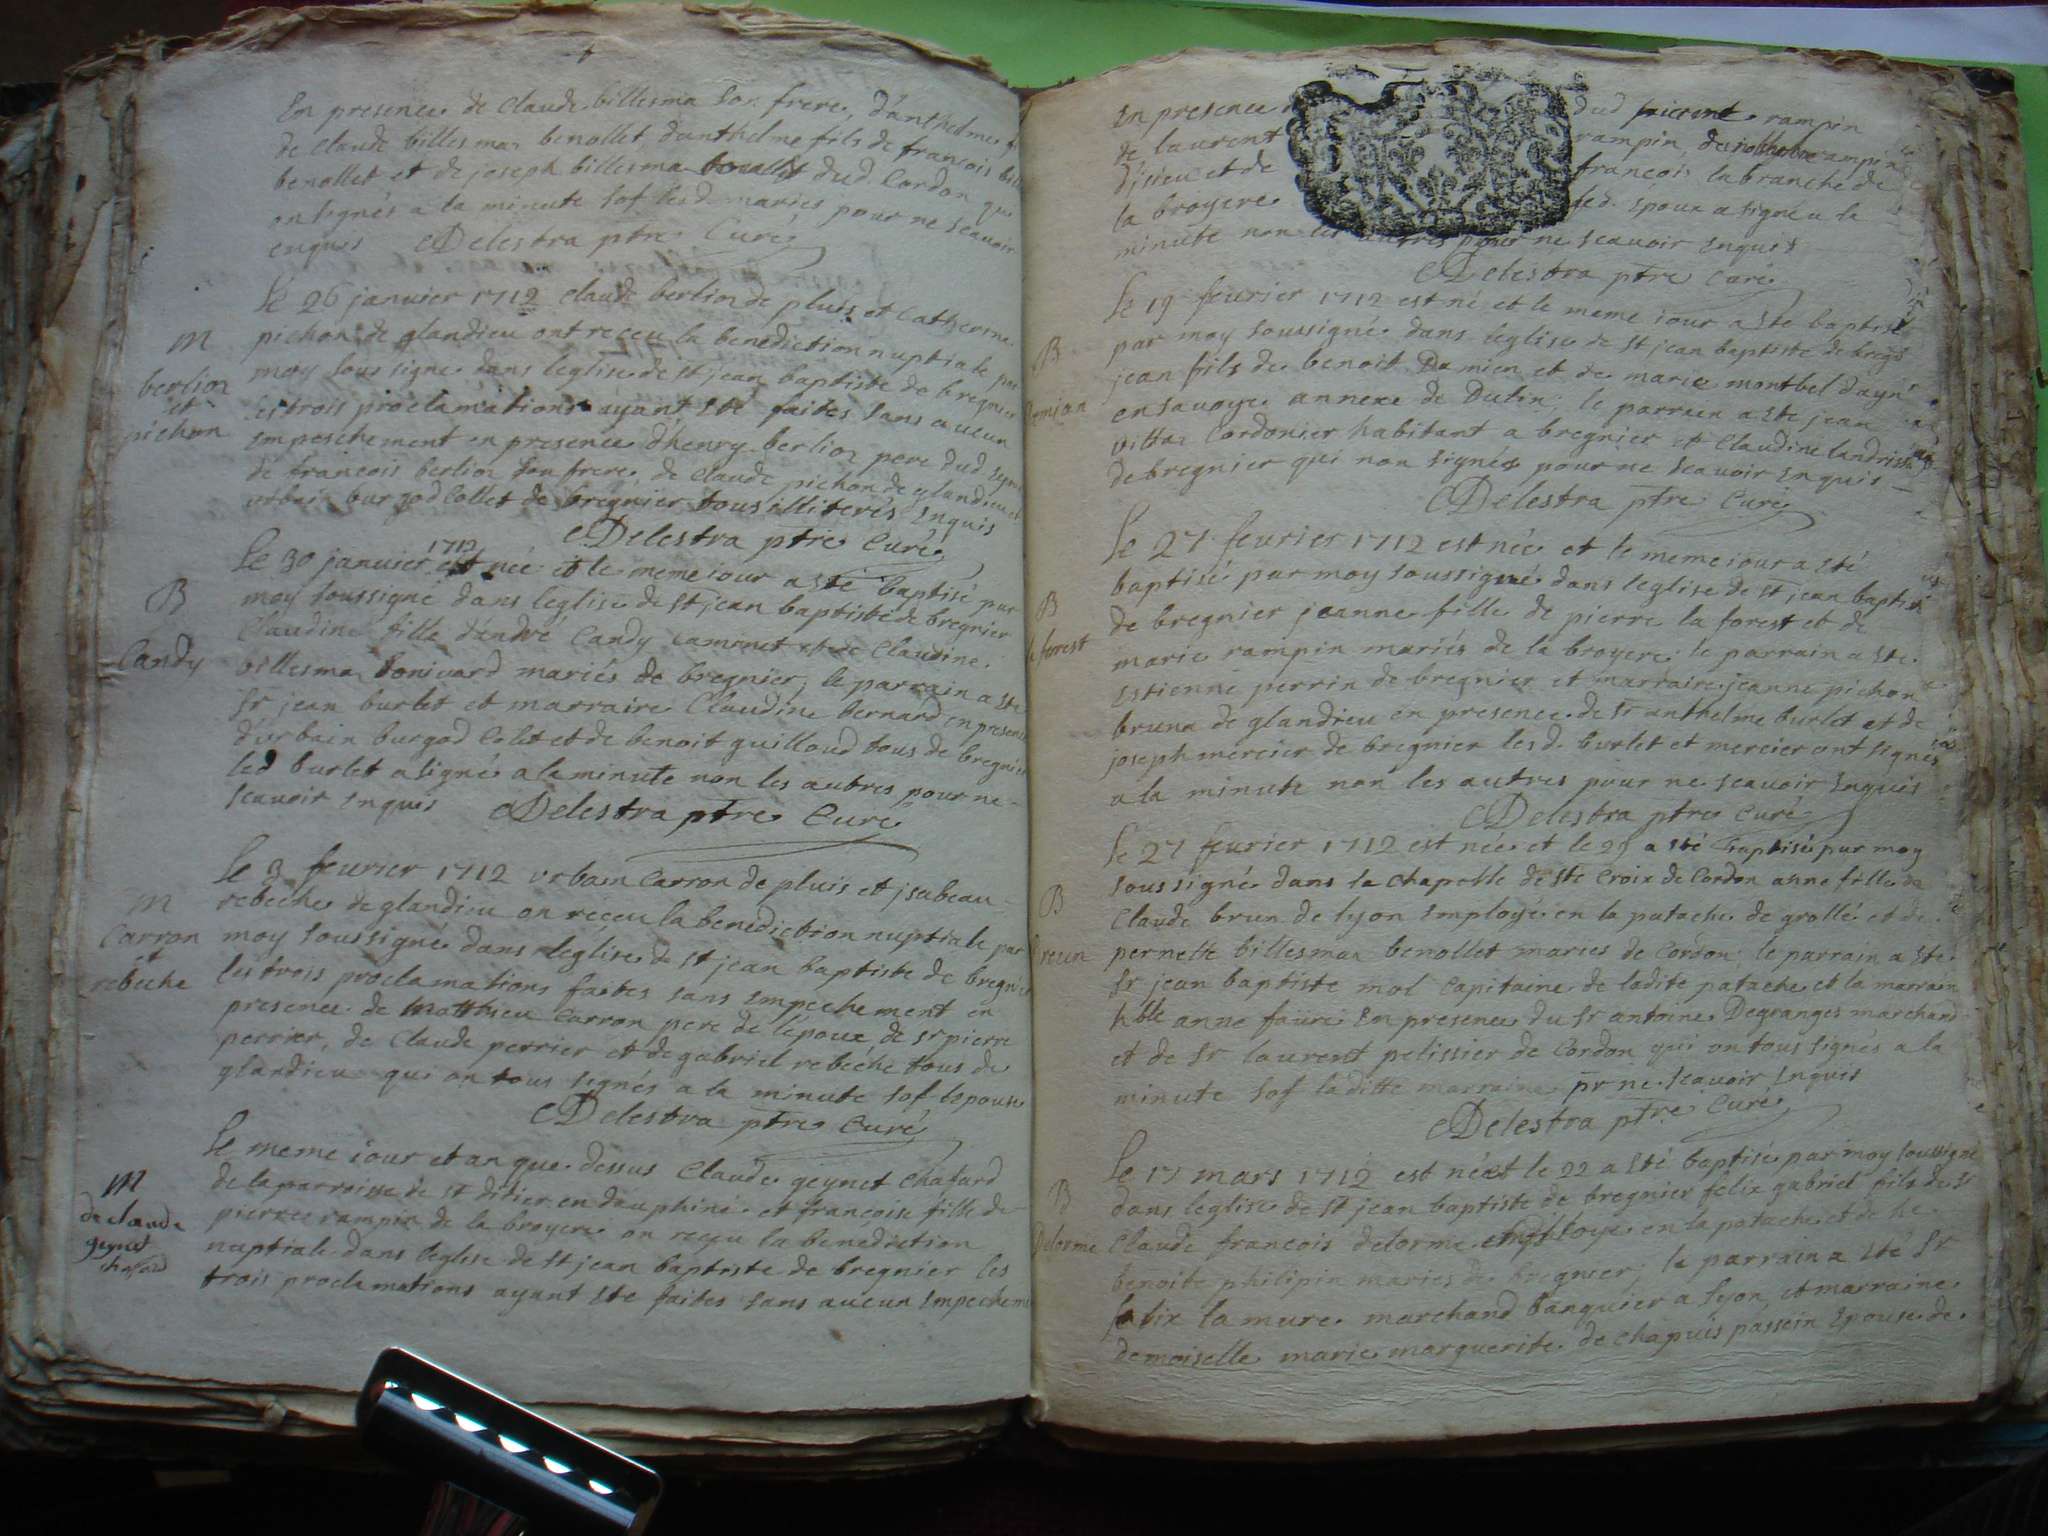 En presence de Claude billesmaz son frere, d'anthelme
de Claude billesmaz benollet, d'anthelme fils de françois
benollet et de joseph billesmaz dud. Cordon qui
on signés a la minute sof lesd. mariés pour ne scavoir
enquis Delestra ptre Curé
Le 26 janvier 1712 Claude berlioz de pluis et Catherine
pichon de glandieu ont receu la benediction nuptiale par
moy soussigné dans leglise de st jean baptiste de bregnier
les trois proclamations ayant esté faites sans aucun
empeschement en presence d'henry berlioz pere dud.
de françois berlioz son frere, de Claude pichon de glandieu et
urbain burgod Collet de bregnier tous illiterés enquis
Delestra ptre Curé
M
berlioz
et
pichon
Le 30 janvier 1712 est née et le meme iour a sté baptisé par
moy soussigné dans leglise de st jean baptiste de bregnier
Claudine fille d'andré Candy et de Claudine
billesmaz bonivard mariés de bregnier, le parrain a sté
Sr jean burlet et marraine Claudine bernard en presence
d'urbain burgod Colet et de benoit guilloud tous de bregnier
led burlet a signé a la minute non les autres pour ne
scavoir enquis Delestra ptre Curé
B
Candy
Le 3 fevrier 1712 urbain Carron de pluis et jsabeau
rebeche de glandieu on reçeu la benediction nuptiale par
moy soussigné dans leglise de st jean baptiste de bregnier
les trois proclamations faites sans empechement en
presence de Matthieu Carron pere de l'époux, de sr pierre
perrier, de Claude perrier et de gabriel rebéche tous de
glandieu qui on tous signés a la minute sof lepouse
Delestra ptre Curé
M
Carron
et
rebeche
Le meme iour et an que dessus Claude geynet Chafard
de la parroisse de st didier en dauphiné et françoise fille de
pierre rampin de la broyere on reçu la benediction
nuptiale dans leglise de st jean baptiste de bregnier les
trois proclamations ayant esté faites sans aucun empecheme
M
de claude
geynet
chaffard
En presence dud rampin
de laurent rampin,
d'isieu et de françois labranche de
la broyere lesd. epoux a signé a la
minute non les autres pour ne scavoir enquis
Delestra ptre Curé
Le 19 fevrier 1712 est né et le meme iour a sté baptisé
par moy soussigné dans leglise de st jean baptiste de breg
jean fils de benoit Damien et de marie montbel
en savoye annexe de Dulin; le parrain a sté jean
vittaz Cordonier habitant a bregnier et Claudine
de bregnier qui non signés pour ne scavoir enquis
Delestra ptre Curé
B
Le 27 fevrier 1712 est née et le meme iour a sté
baptisé par moy soussigné dans leglise de st jean baptist
de bregnier jeanne fille de pierre la forest et de
marie rampin mariés de la broyere le parrain a sté
Estienne perrin de bregnier et marraine jeanne pichon
bruna de glandieu en presence de sr anthelme burlet et de
joseph mercier de bregnier lesd. burlet et mercier ont signés
a la minute non les autres pour ne scavoir enquis
Delestra ptre Curé
B
forest
Le 27 fevrier 1712 est née et le 29 a sté baptisé par moy
soussigné dans la chapelle de ste Croix de Cordon anne fille de
Claude brun de lyon employé en la patache de grollé et de
pernette billesmaz benollet mariés de Cordon; le parrain a sté
Sr jean baptiste mol Capitaine de ladite patache et la marrain
hble anne faure En presence du Sr antoine Degranges marchand
et de Sr laurent pelissier de Cordon qui on tous signés a la
minute sof laditte marraine pr ne scavoir enquis
Delestra ptre Curé
B
Le 17 mars 1712 est né et le 22 a sté baptisé par moy soussigné
dans leglise de st jean baptiste de bregnier felix gabriel fils de Sr
Claude françois delorme employé en la patache et de
benoite philipin mariés de bregnier; le parrain a sté Sr
felix lamure marchand banquier a lyon, et marraine
demoiselle marie marguerite de chapuis passein epouse de
B
Delorme